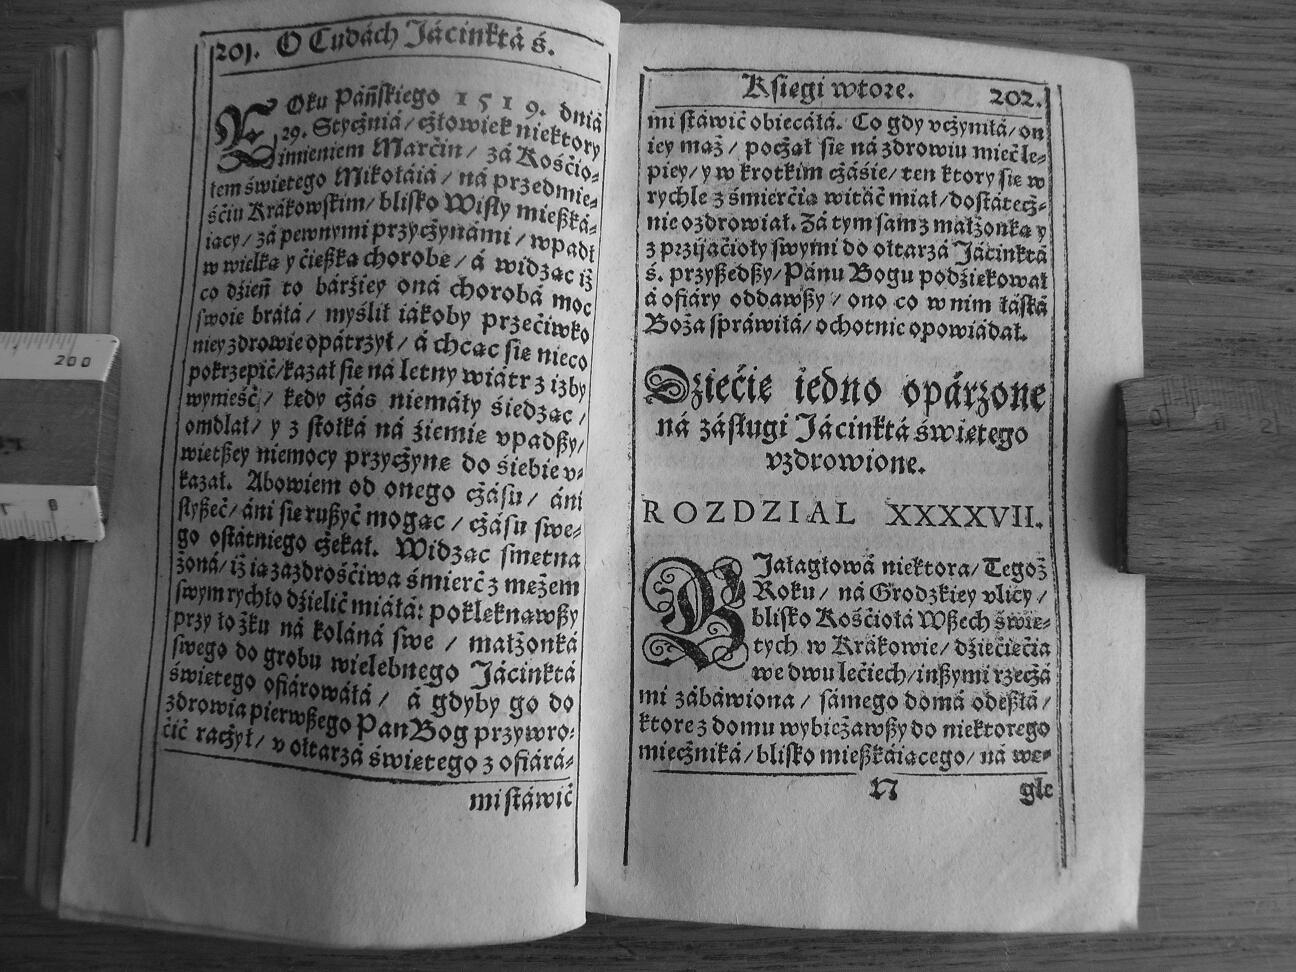 201. O Cudách Jácinktá ś.
ROku Páńſkiego 1519. dniá
29. Stycżniá / cżłowiek niektory
imieniem Marćin / zá Kośćio-
łem świętego Mikołáiá / ná przedmie-
śćiu Krákowſkim / bliſko Wiſły mießká-
iący / zá pewnymi przycżynámi / wpadł
w wielką y ćięßką chorobę / á widząc iż
co dźień to bárźiey oná chorobá moc
ſwoię bráłá / myślił iákoby przećiwko
niey zdrowie opátrzył / á chcąc ſię nieco
pokrzepić / kazał ſię ná letny wiátr z izby
wynieść / kędy cżás niemáły śiedząc /
omdlał / y z ſtołká ná źiemię vpadßy /
więtßey niemocy przycżynę do śiebie v-
kazał. Abowiem od onego cżáſu / áni
ſłyßeć / áni ſię rußyć mogąc / cżáſu ſwe-
go oſtátniego cżekał. Widząc ſmętna
żoná / iż ią zazdrośćiwa śmierć z mężem
ſwym rychło dźielić miáłá: poklęknąwßy
przy łożku ná koláná ſwe / małżonká
ſwego do grobu wielebnego Jácinktá
świętego ofiárowáłá / á gdyby go do
zdrowia pierwßego Pan Bog przywro-
ćić racżył / v ołtarzá świętego z ofiárá-
mi ſtáwić
Kſięgi wtore. 202.
mi ſtáwić obiecáłá. Co gdy vcżyniłá / on
iey mąż / pocżął ſię ná zdrowiu mieć le-
piey / y w krotkim cżáśie / ten ktory ſię w
rychle z śmierćią witáć miał / doſtátecż-
nie ozdrowiał. Zá tym ſam z małżonką y
z przyiaćioły ſwymi do ołtarzá Jácinktá
ś. przyßedßy / Pánu Bogu podźiękował
á ofiáry oddawßy / ono co w nim łáſká
Boża ſpráwiłá / ochotnie opowiádał.
Dźiećię iedno opárzone
ná zásługi Jácinktá świętego
vzdrowione.
ROZDZIAL XXXXVII.
BJałagłowá niektora / Tegoż
Roku / ná Grodzkiey vlicy /
bliſko Kośćiołá Wßech świę-
tych w Krákowie / dźiećięćia
we dwu lećiech / inßymi rzecżá
mi zábáwiona / ſámego domá odeßłá /
ktore z domu wybieżawßy do niektorego
miecżniká / bliſko mießkáiącego / ná wę-
N glę